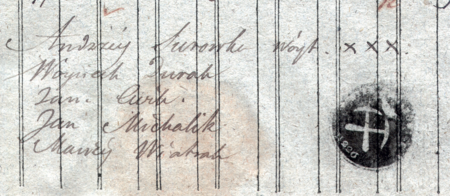 Andrzéy Surowka Wóyt. xxx.
Woyciech Jurah
Jan. Curh.
Jan Michalik
Maciey Wiatrah